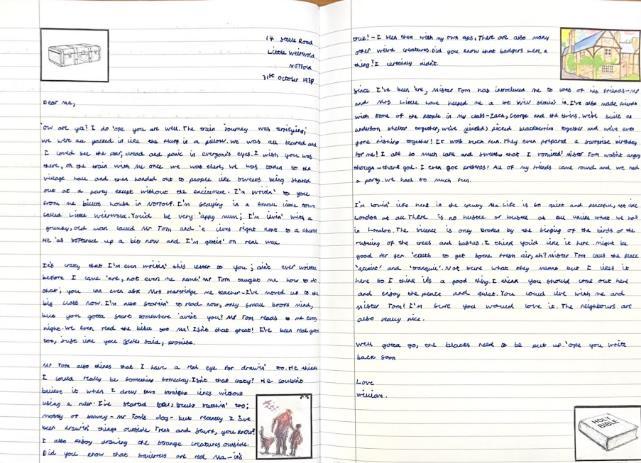 Little Weirwold
31st October
Dear Mum,
'Ow are ya? I do 'ope you are well. The train journey was terrifying;
we were all packed in like
I could see the worry and panic in everyone's eyes. I wish you was
there, on the train with me. Once we was there, we was taken to the
village hall and was handed out to people like sweets being shared
out at a party except without the excitement. I'm writin' to you
from me billet's house in Norfolk. I'm staying in a house
called Little Weirwold. You'd be very 'appy mum; I'm livin' with a
grumpy old man called Mr Tom and 'e lives right next to a church
He 'as softened up a bit now and I'm gettin' on real well
It's crazy that I'm even writin' this letter to you; ain't ever written
before I came 'ere, not even me name! Mr Tom taught me how to do
that; you see even Mrs Hartridge me teacher. I've moved up to the
big class now. I'm also startin' to read now, only small books mind,
but you gotta start somewhere 'aint you? Mr Tom reads to me every
night. We even read the bible too Mr! Isn't that great! I've been real good
too, just like you said, promise.
Mr Tom also thinks that I have a real eye for drawin' too. He thinks
I could really be something someday. Isn't that crazy! He couldn't
believe it when I drew two straight lines without
using a ruler. I've started
mostly of Sammy - Mr Tom's dog - but recently I've
been drawin' things outside
I also enjoy drawing the strange creatures outside.
Did you know that squirrels are red Ma - it's
true! - I seen them with my own eyes. There are also many
other weird creatures. Did you know that badgers were a
thing? I certainly didn't.
Since I've been 'ere, Mister Tom has introduced me to lots of his friends - Mr
and Mrs Little have helped me a lot. I've also made friends
with some of the people in my class - Zach, George and the twins. We've built an
anderson shelter together, we've picked blackberries together and we've even
gone fishing together! It was such fun. They even prepared a surprise birthday
for me! I ate so much cake and sweets that I vomited! Mister Tom wasn't angry
though - thank god. I even got presents! All of my friends came round and we had
a party. We had so much fun.
I'm lovin' life here in the country Ma. Life is so quiet and peaceful, not like
London at all. There is no hustle or bustle at all unlike what we had
in London. The silence is only broken by the chirping of the birds or the
rustling of the trees and bushes. I think you'd like it here
good for yer 'ealth to get some fresh air, ah? Mister Tom calls the place
"quaint" and "tranquil". Not sure what they mean but I like it
here so I think it's a good thing. I think you should come out here
and enjoy the peace and quiet. You could live with me and
Mister Tom! I'm sure you would love it. The neighbours are
also really nice.
Well gotta go, the blacks need to be put up. 'ope you write
back soon
Love
William.
HOLY
BIBLE